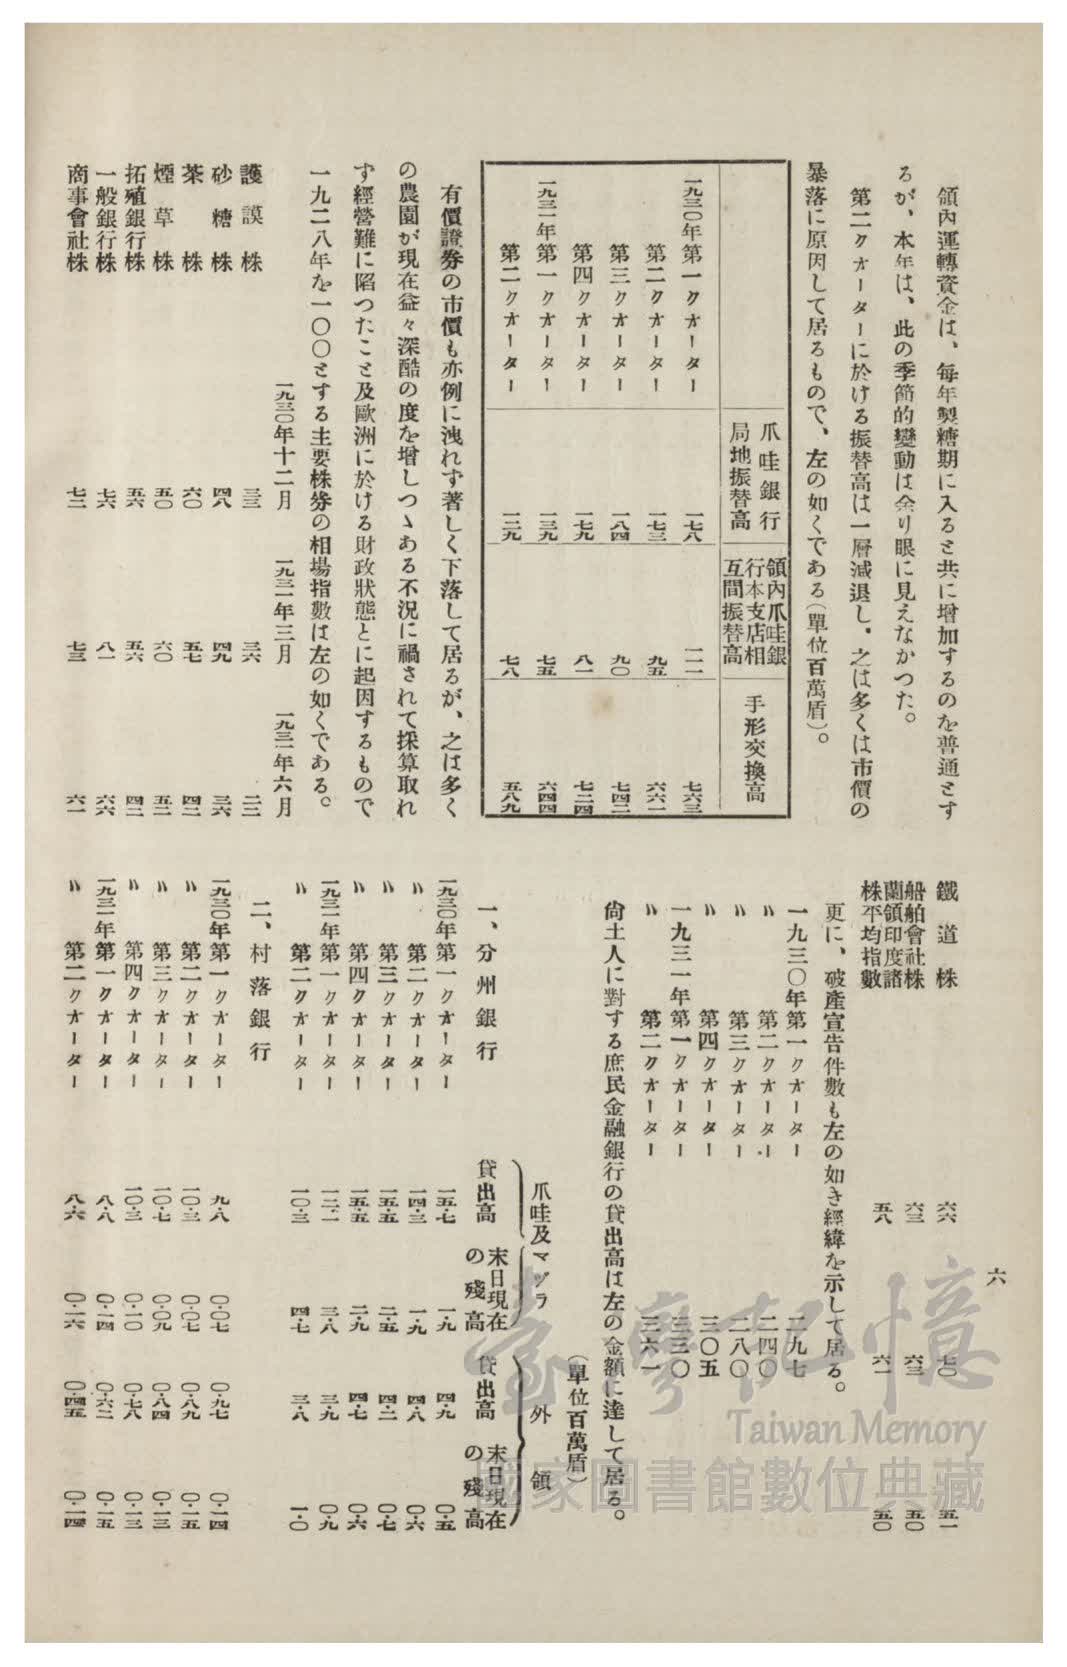 六
領內運轉資金は、每年製糖期に入ると共に增加するのを普通とす
るが、本年は、此の季節的變動は余り眼に見えなかつた。
第二クオーターに於ける振替高は一層減退し、之は多くは市價の
暴落に原因して居るもので、左の如くである(單位百萬盾)。
爪哇銀行局地振替高 領內爪哇銀行本支店相互間振替高 手形交換高
一九三〇年第一クオーター 一七八 一一一 七六三
第二クオーター 一七三 九五 六六一
第三クオーター 一八四 九〇 七四二
第四クオーター 一七九 八一 七二四
一九三一年第一クオーター 一三九 七五 六四四
第二クオーター 一二九 七八 五八九
有價證券の市價も亦例に洩れず著しく下落して居るが、之は多く
の農園が現在益々深酷の度を增しつゝある不況に禍されて採算取れ
ず經營難に陷つたこと及歐洲に於ける財政狀態とに起因するもので
一九二八年を一〇〇とする主要株券の相場指數は左の如くである。
一九三〇年十二月 一九三一年三月 一九三一年六月
護謨株 三三 三六 二二
砂糖株 四八 四九 三六
茶株 六〇 五七 四二
煙草株 五〇 六〇 五二
拓殖銀行株 五六 五六 四二
一般銀行株 七六 八一 六六
商事會社株 七三 七三 六一
鐵道株 六六 七〇 五一
船舶會社株 六三 六三 五〇
蘭領印度諸株平均指數 五八 六一 五〇
更に、破產宣告件數も左の如き經緯を示して居る。
一九三〇年第一クオーター 二九七
〃 第二クオーター 二四〇
〃 第三クオーター 二八〇
〃 第四クオーター 三〇五
一九三一年第一クオーター 三三〇
〃 第二クオーター 三六一
尙土人に對する庶民金融銀行の貸出高は左の金額に達して居る。
(單位百萬盾)
爪哇及マヅラ 外領
貸出高 末日現在の殘高 貸出高 末日現在の殘高
一、分州銀行
一九三〇年第一クオーター 一五・七 一・九 四・九 〇・五
〃 第二クオーター 一四・三 一・九 四・八 〇・六
〃 第三クオーター 一五・五 二・五 四・二 〇・七
〃 第四クオーター 一五・五 二・九 四・七 〇・六
一九三一年第一クオーター 一二・一 三・八 三・九 〇・九
〃 第二クオーター 一〇・三 四・七 三・八 一・〇
二、村落銀行
一九三〇年第一クオーター 九・八 〇・〇七 〇・九七 〇・一四
〃 第二クオーター 一〇・三 〇・〇七 〇・八九 〇・一五
〃 第三クオーター 一〇・七 〇・〇九 〇・八四 〇・一三
〃 第四クオーター 一〇・三 〇・一〇 〇・七八 〇・一三
一九三一年第一クオーター 八・八 〇・一四 〇・六二 〇・一五
〃 第二クオーター 八・六 〇・一六 〇・四五 〇・一四
臺灣記憶
Taiwan Memory
國家圖書館數位典藏